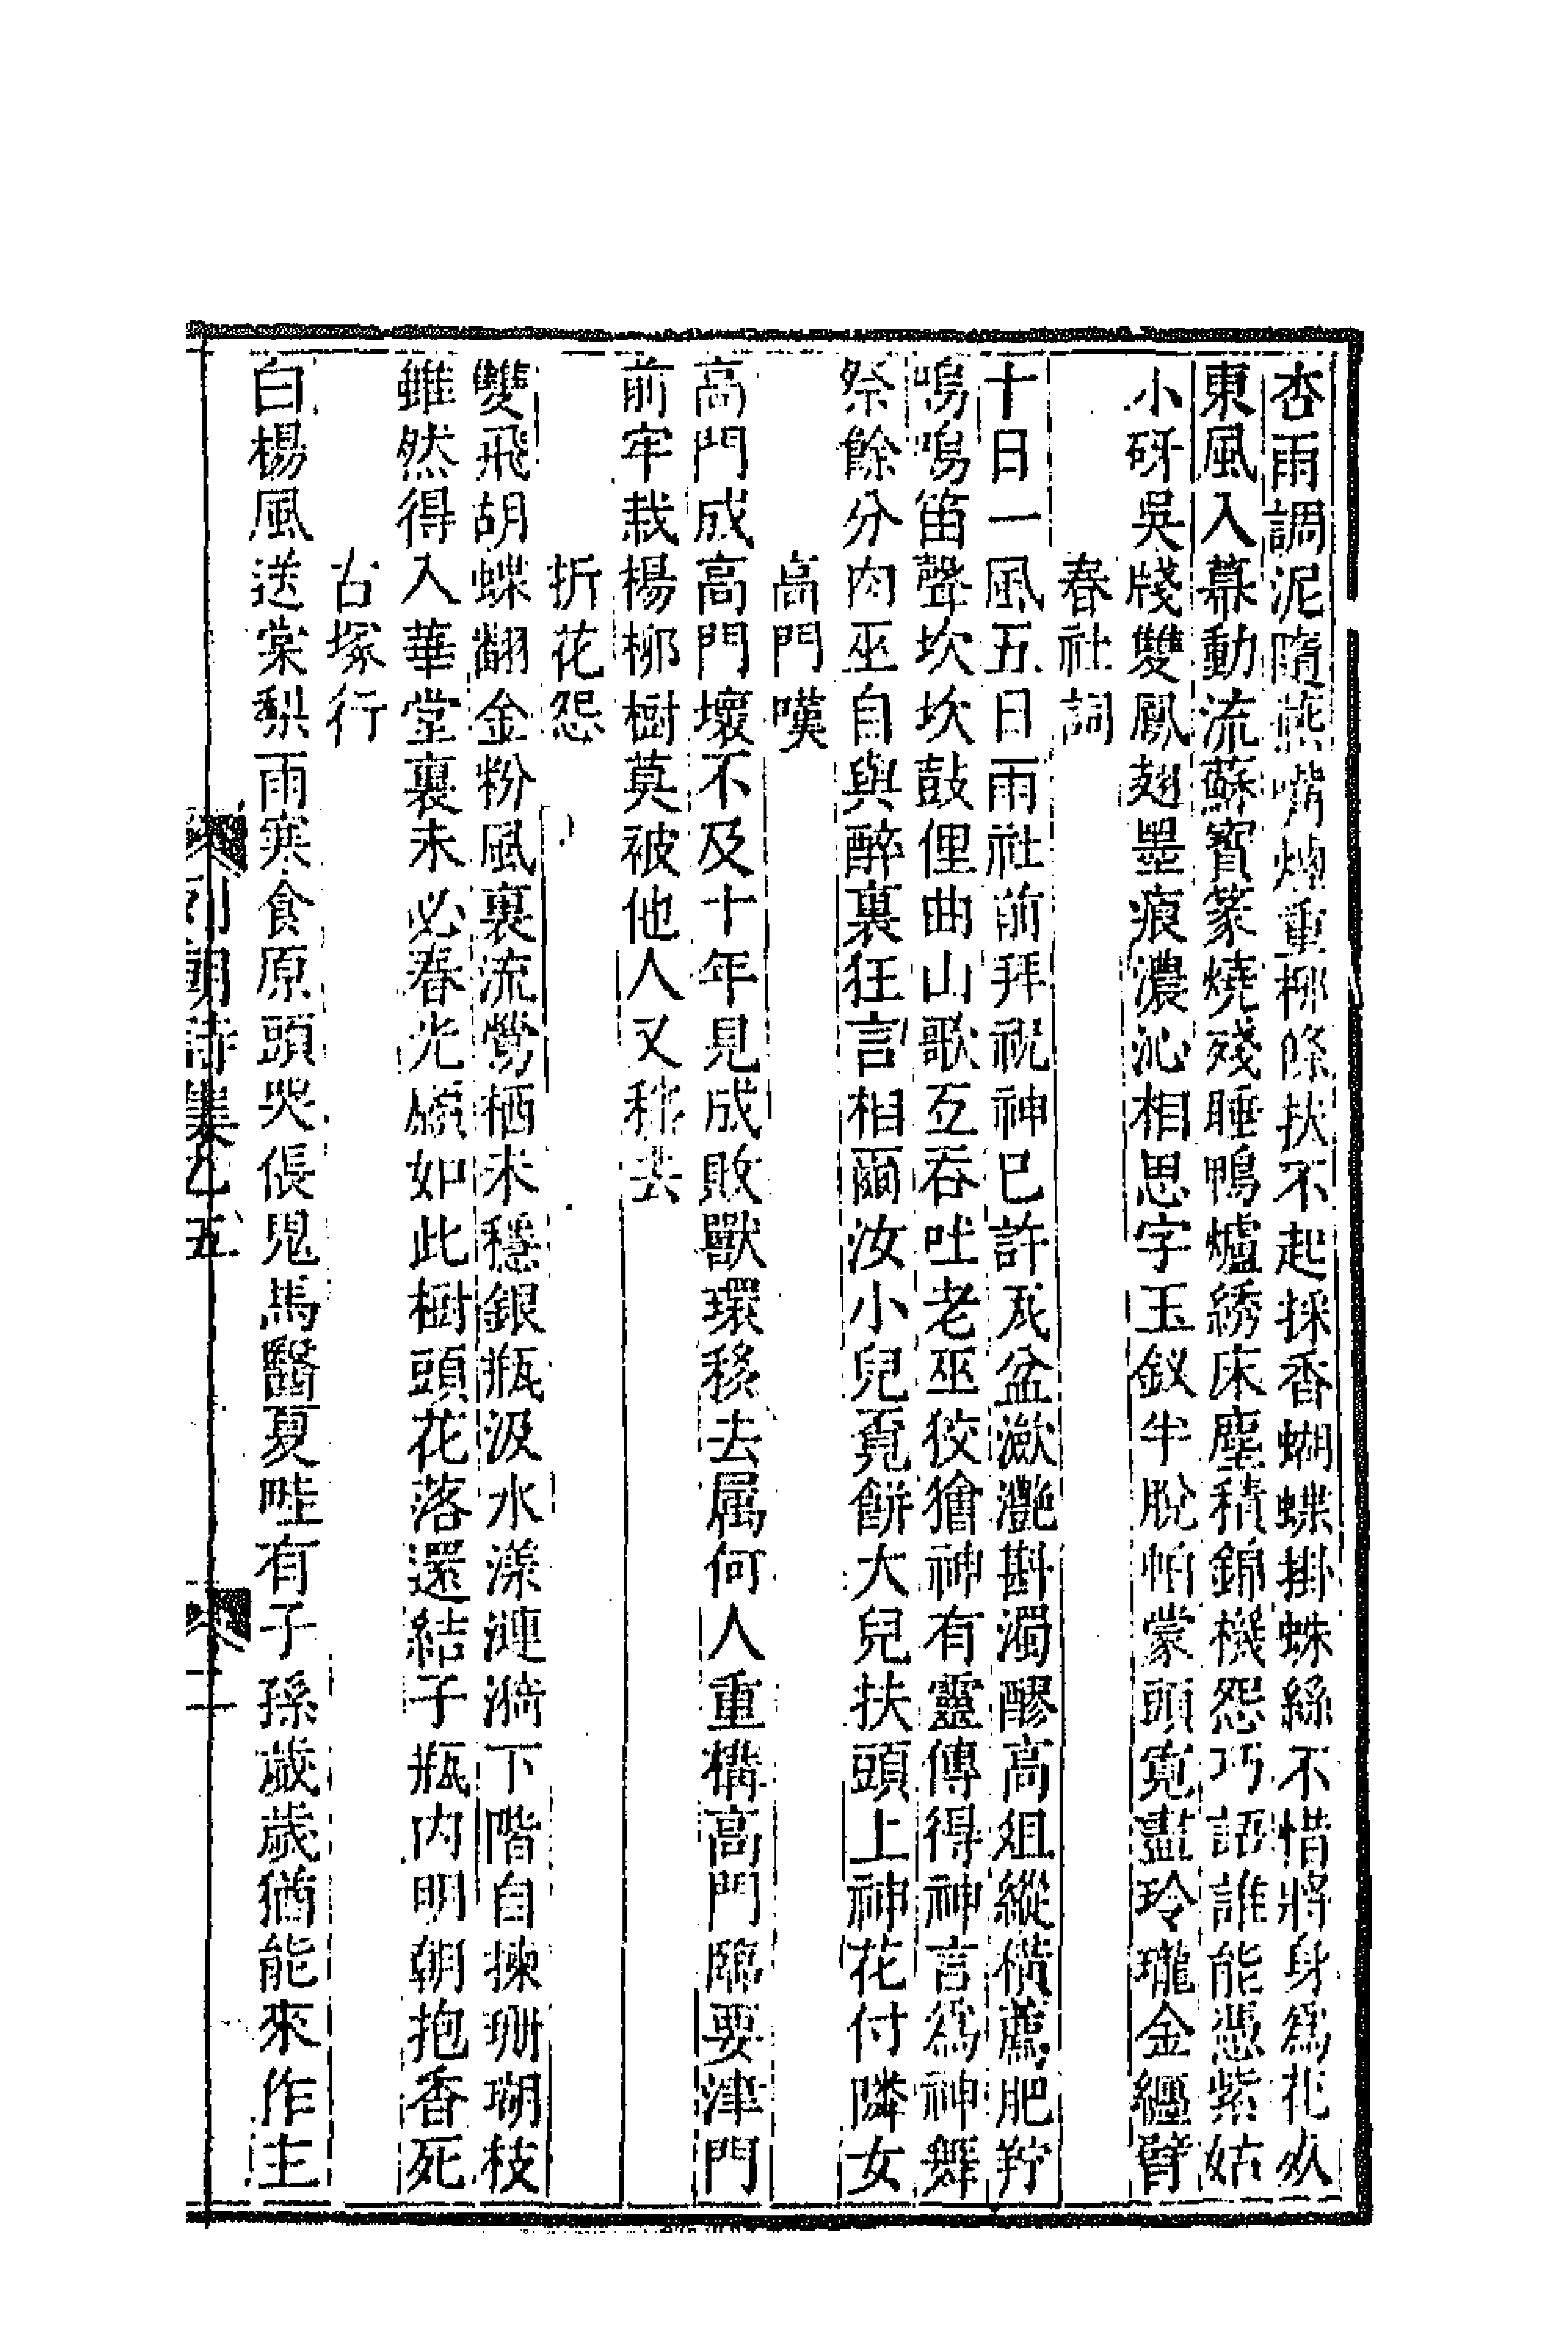 杏雨調泥隨燕嘴煙重桺條扶不起採香蝴蝶掛蛛絲不惜將身爲花死
東風入幕動流蘇寳篆燒殘睡鴨爐綉床塵積錦機怨巧語誰能憑紫姑
小硏吳牋雙鳳翅墨痕濃沁相思字玉釵半脫帕蒙頭寛盡玲瓏金纏臂
春社詞
十日一風五日雨社前拜祝神已許瓦盆瀲灧斟濁醪高俎縱橫薦肥羜
嗚嗚笛聲坎坎鼓俚曲山歌互吞吐老巫狡獪神有靈傳得神言爲神舞
祭餘分肉巫自與醉裏狂言相爾汝小兒覔餅大兒扶頭上神花付隣女
高門嘆
高門成高門壞不及十年見成敗獸環移去属何人重構高門臨要津門
前牢栽楊桺樹莫被他人又移去
折花怨
雙飛胡蝶翻金粉風裏流鶯栖未穩銀瓶汲水漾漣漪下階自揀珊瑚枝
雖然得入華堂裏未必春光頗如此樹頭花落還結子瓶内明朝抱香死
古塚行
白楊風送棠梨雨寒食原頭哭倀鬼馬醫夏畦有子孫歲歲猶能來作主
列朝詩集乙五
二